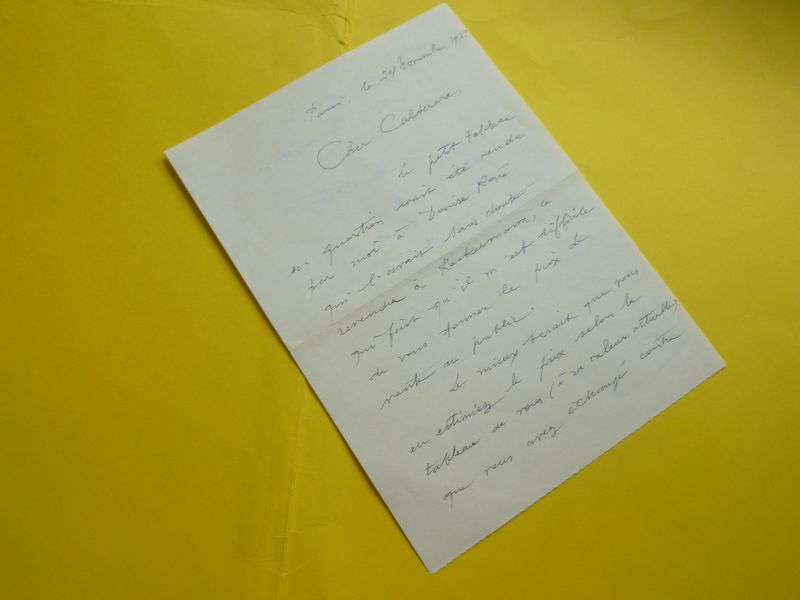 Paris. le 24 Novembre 1972
Cher Calderara.
le petit tableau
en question avait été vendu
par moi à Denise René
qui l'avait sans doute
revendu à Rackermann, ce
qui fait qu'il m'est difficile
de vous donner le prix de
vente au public.
Le mieux serait que vous
en estimiez le prix selon le
tableau de vous (à sa valeur actuelle)
que vous avez échangé contre